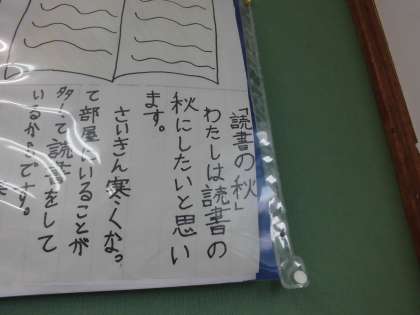 「読書の秋」
わたしは読書の
秋にしたいと思い
ます。
さいきん寒くなっ
て部屋にいることが
多くて読書をして
いるからです。